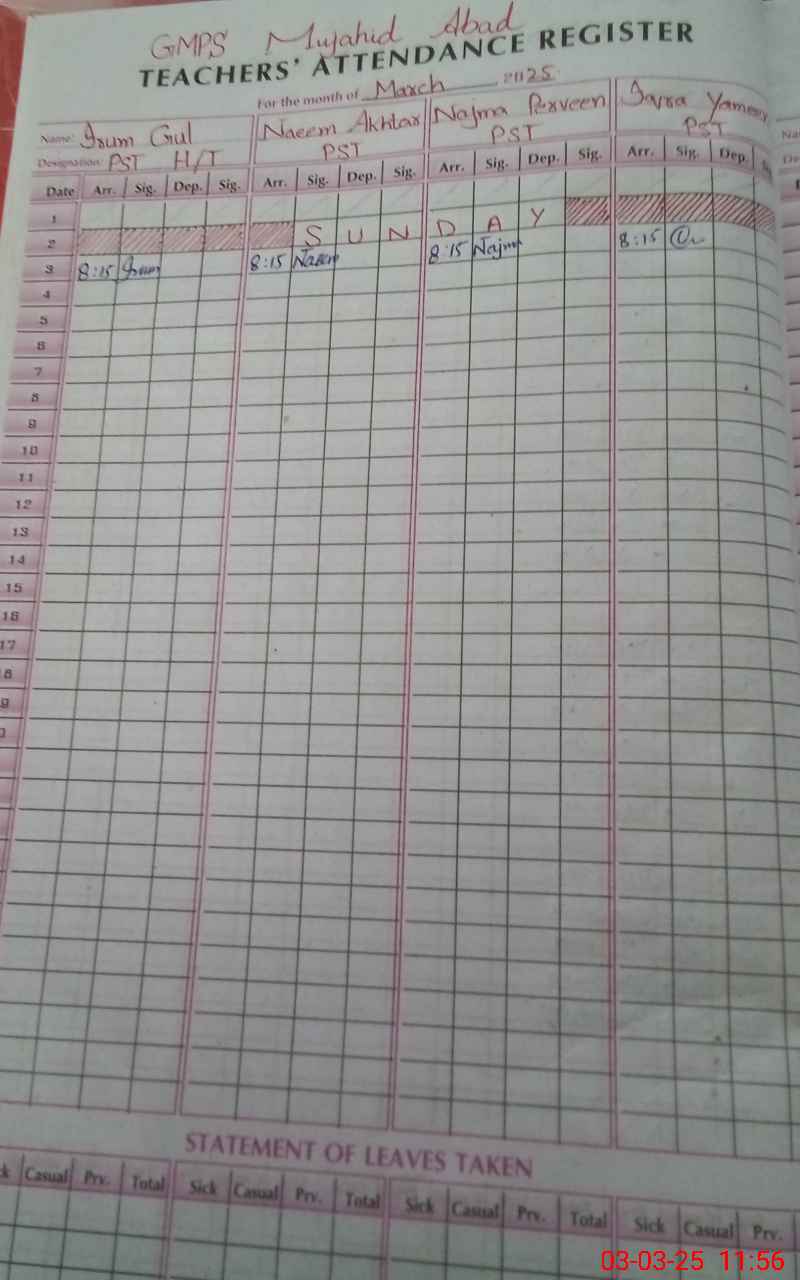 GMPS Mujahid Abad
TEACHERS' ATTENDANCE REGISTER
For the month of March 2025
Name: Irum Gul Naeem Akhtar Najma Perveen
Designation: PST H/T PST PST PST
Date Arr. Sig. Dep. Sig. Arr. Sig. Dep. Sig. Arr. Sig. Dep. Sig. Arr. Sig. Dep.
1
2 S U N D A Y
3 8:15 Irum 8:15 Naeem 8:15 Najma 8:15
4
5
6
7
8
9
10
11
12
13
14
15
16
17
8
9
STATEMENT OF LEAVES TAKEN
k Casual Prv. Total Sick Casual Prv. Total Sick Casual Prv. Total Sick Casual Prv.
03-03-25 11:56